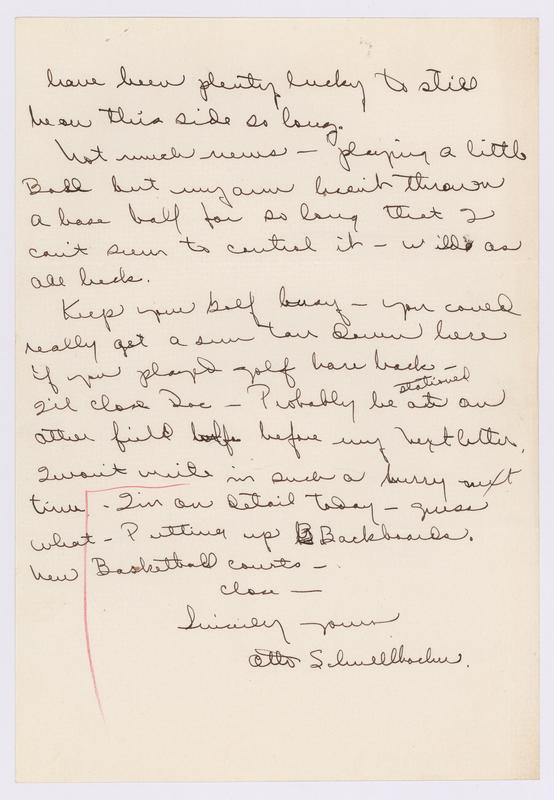 have been plenty lucky to still
be on this side so long.
Not much news – playing a little
Ball but my arm hasn't thrown
a base ball for so long that I
can't seem to control it – wild as
all heck.
Keep your golf busy – you could
really get a sun tan down here
if you played golf bare back –
I'll close Doc – Probably be stationed at an
other field before my next letter.
I won't write in such a hurry next
time. - I'm on detail today – guess
what – Putting up Backboards.
New Basketball courts –
close —
Sincerely yours
Otto Schnellbacher.